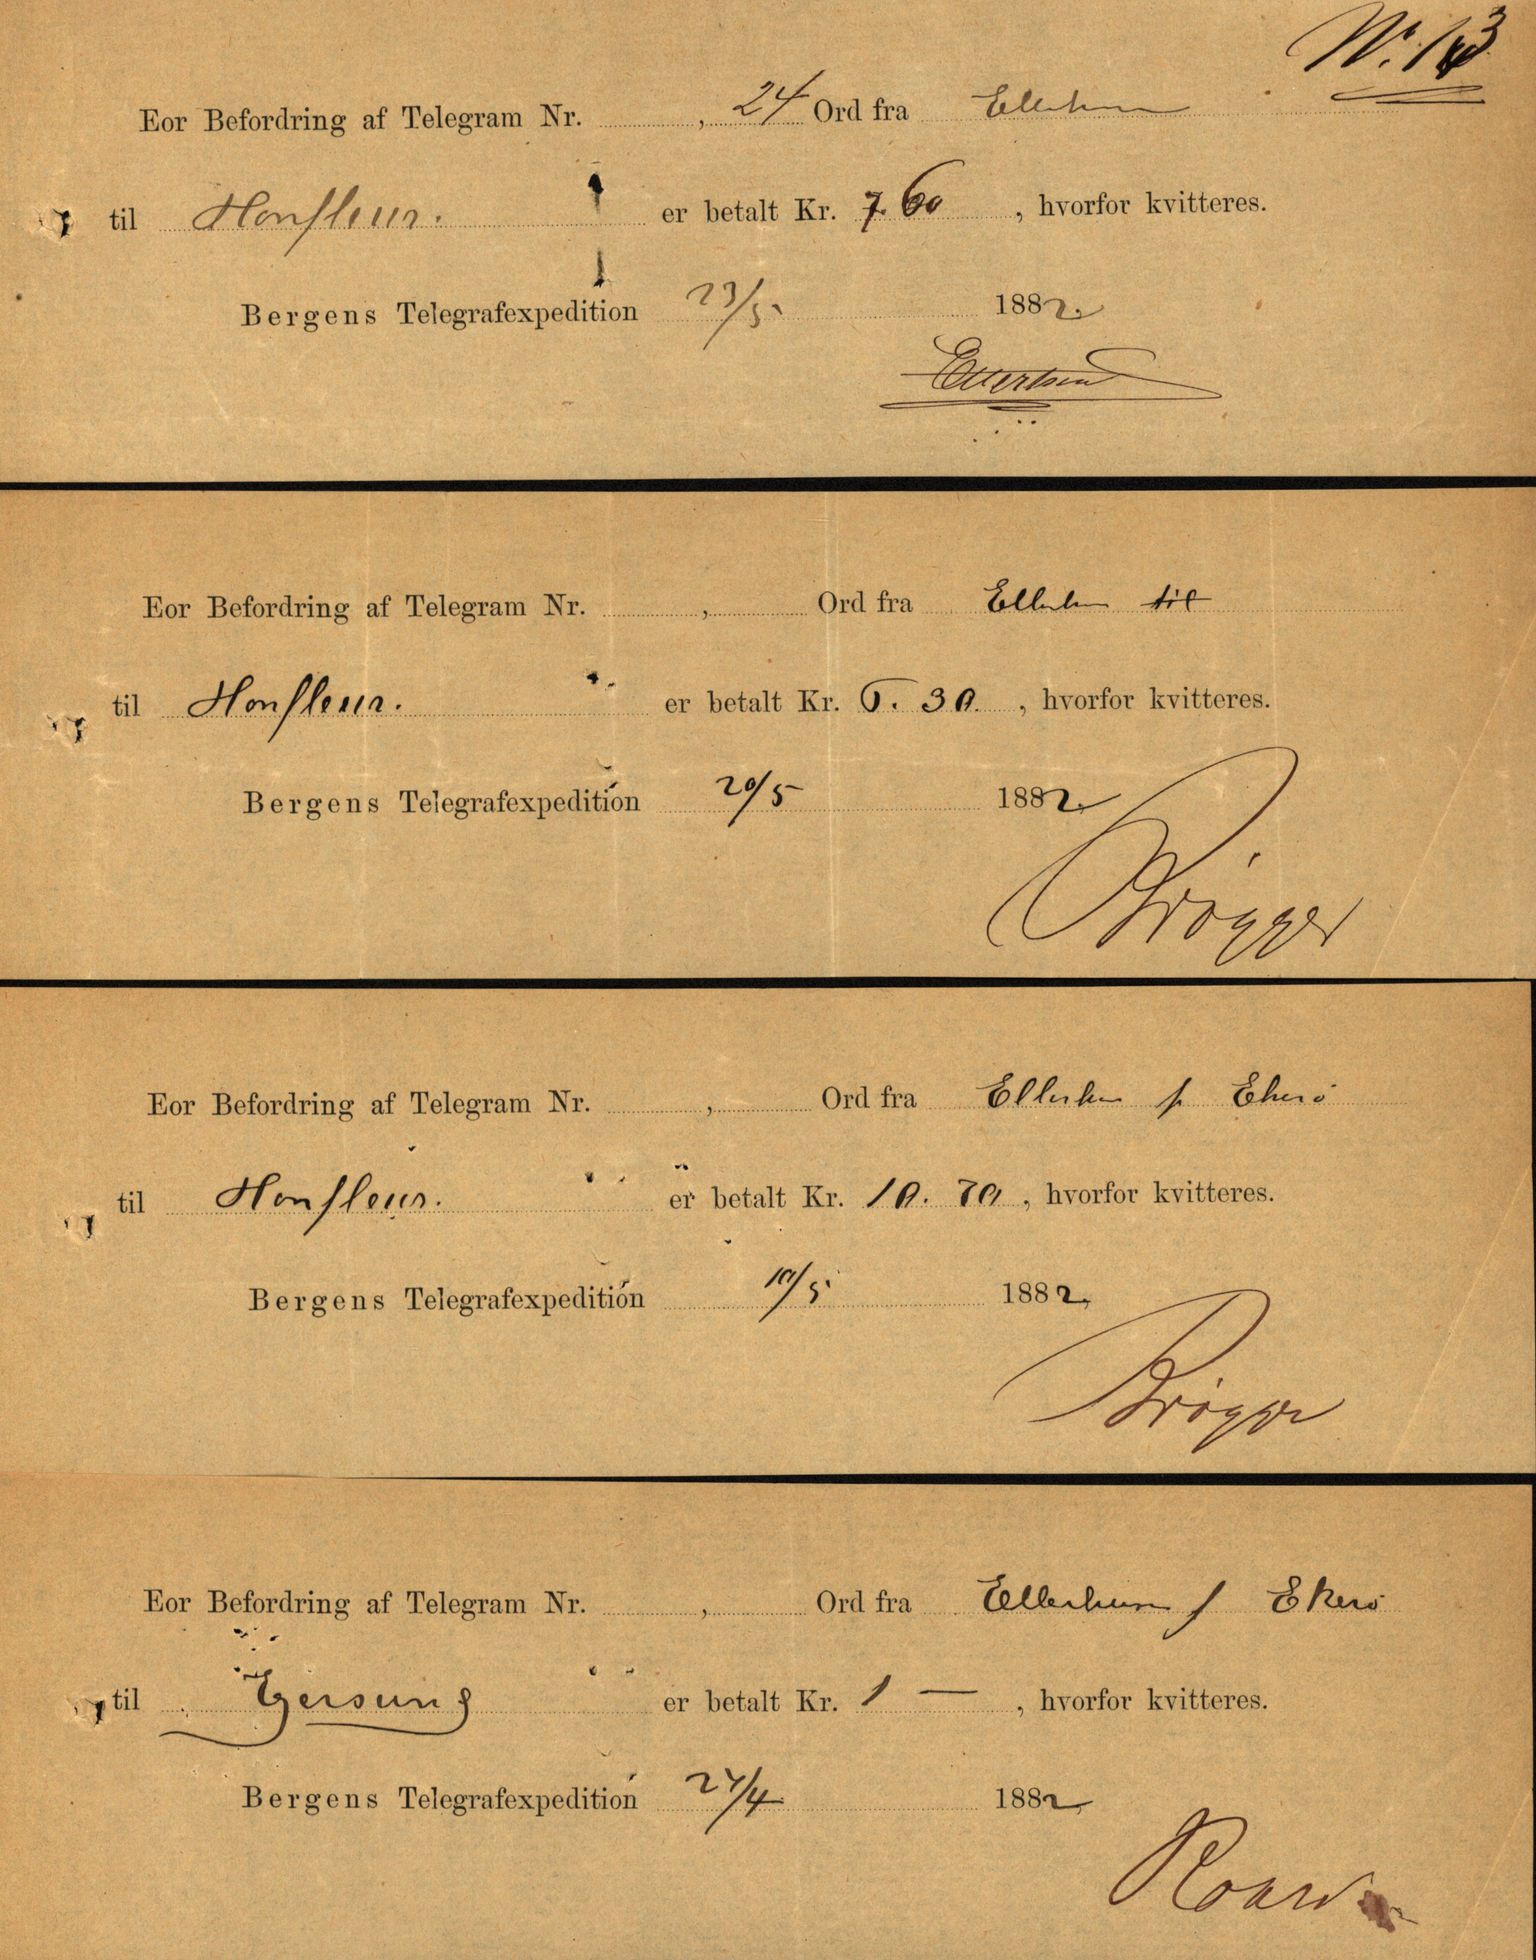 Nr. 13
Eor Befordring af Telegram Nr. , 24 Ord fra Ellerhusen
til Honfleur. er betalt Kr. 7.60 , hvorfor kvitteres.
Bergens Telegrafexpedition 23/5 1882.
Eor Befordring af Telegram Nr. , Ord fra Ellerhusen til
til Honfleur. er betalt Kr. 5. 30. , hvorfor kvitteres.
Bergens Telegrafexpedition 20/5 1882.
Brøgger
Eor Befordring af Telegram Nr. , Ord fra Ellerhusen f Ekerö
til Honfleur. er betalt Kr. 10. 70 , hvorfor kvitteres.
Bergens Telegrafexpedition 10/5 1882,
Brøgger
Eor Befordring af Telegram Nr. , Ord fra Ellerhusen f Ekerö
til Egersund er betalt Kr. 1 — , hvorfor kvitteres.
Bergens Telegrafexpedition 24/4 1882,